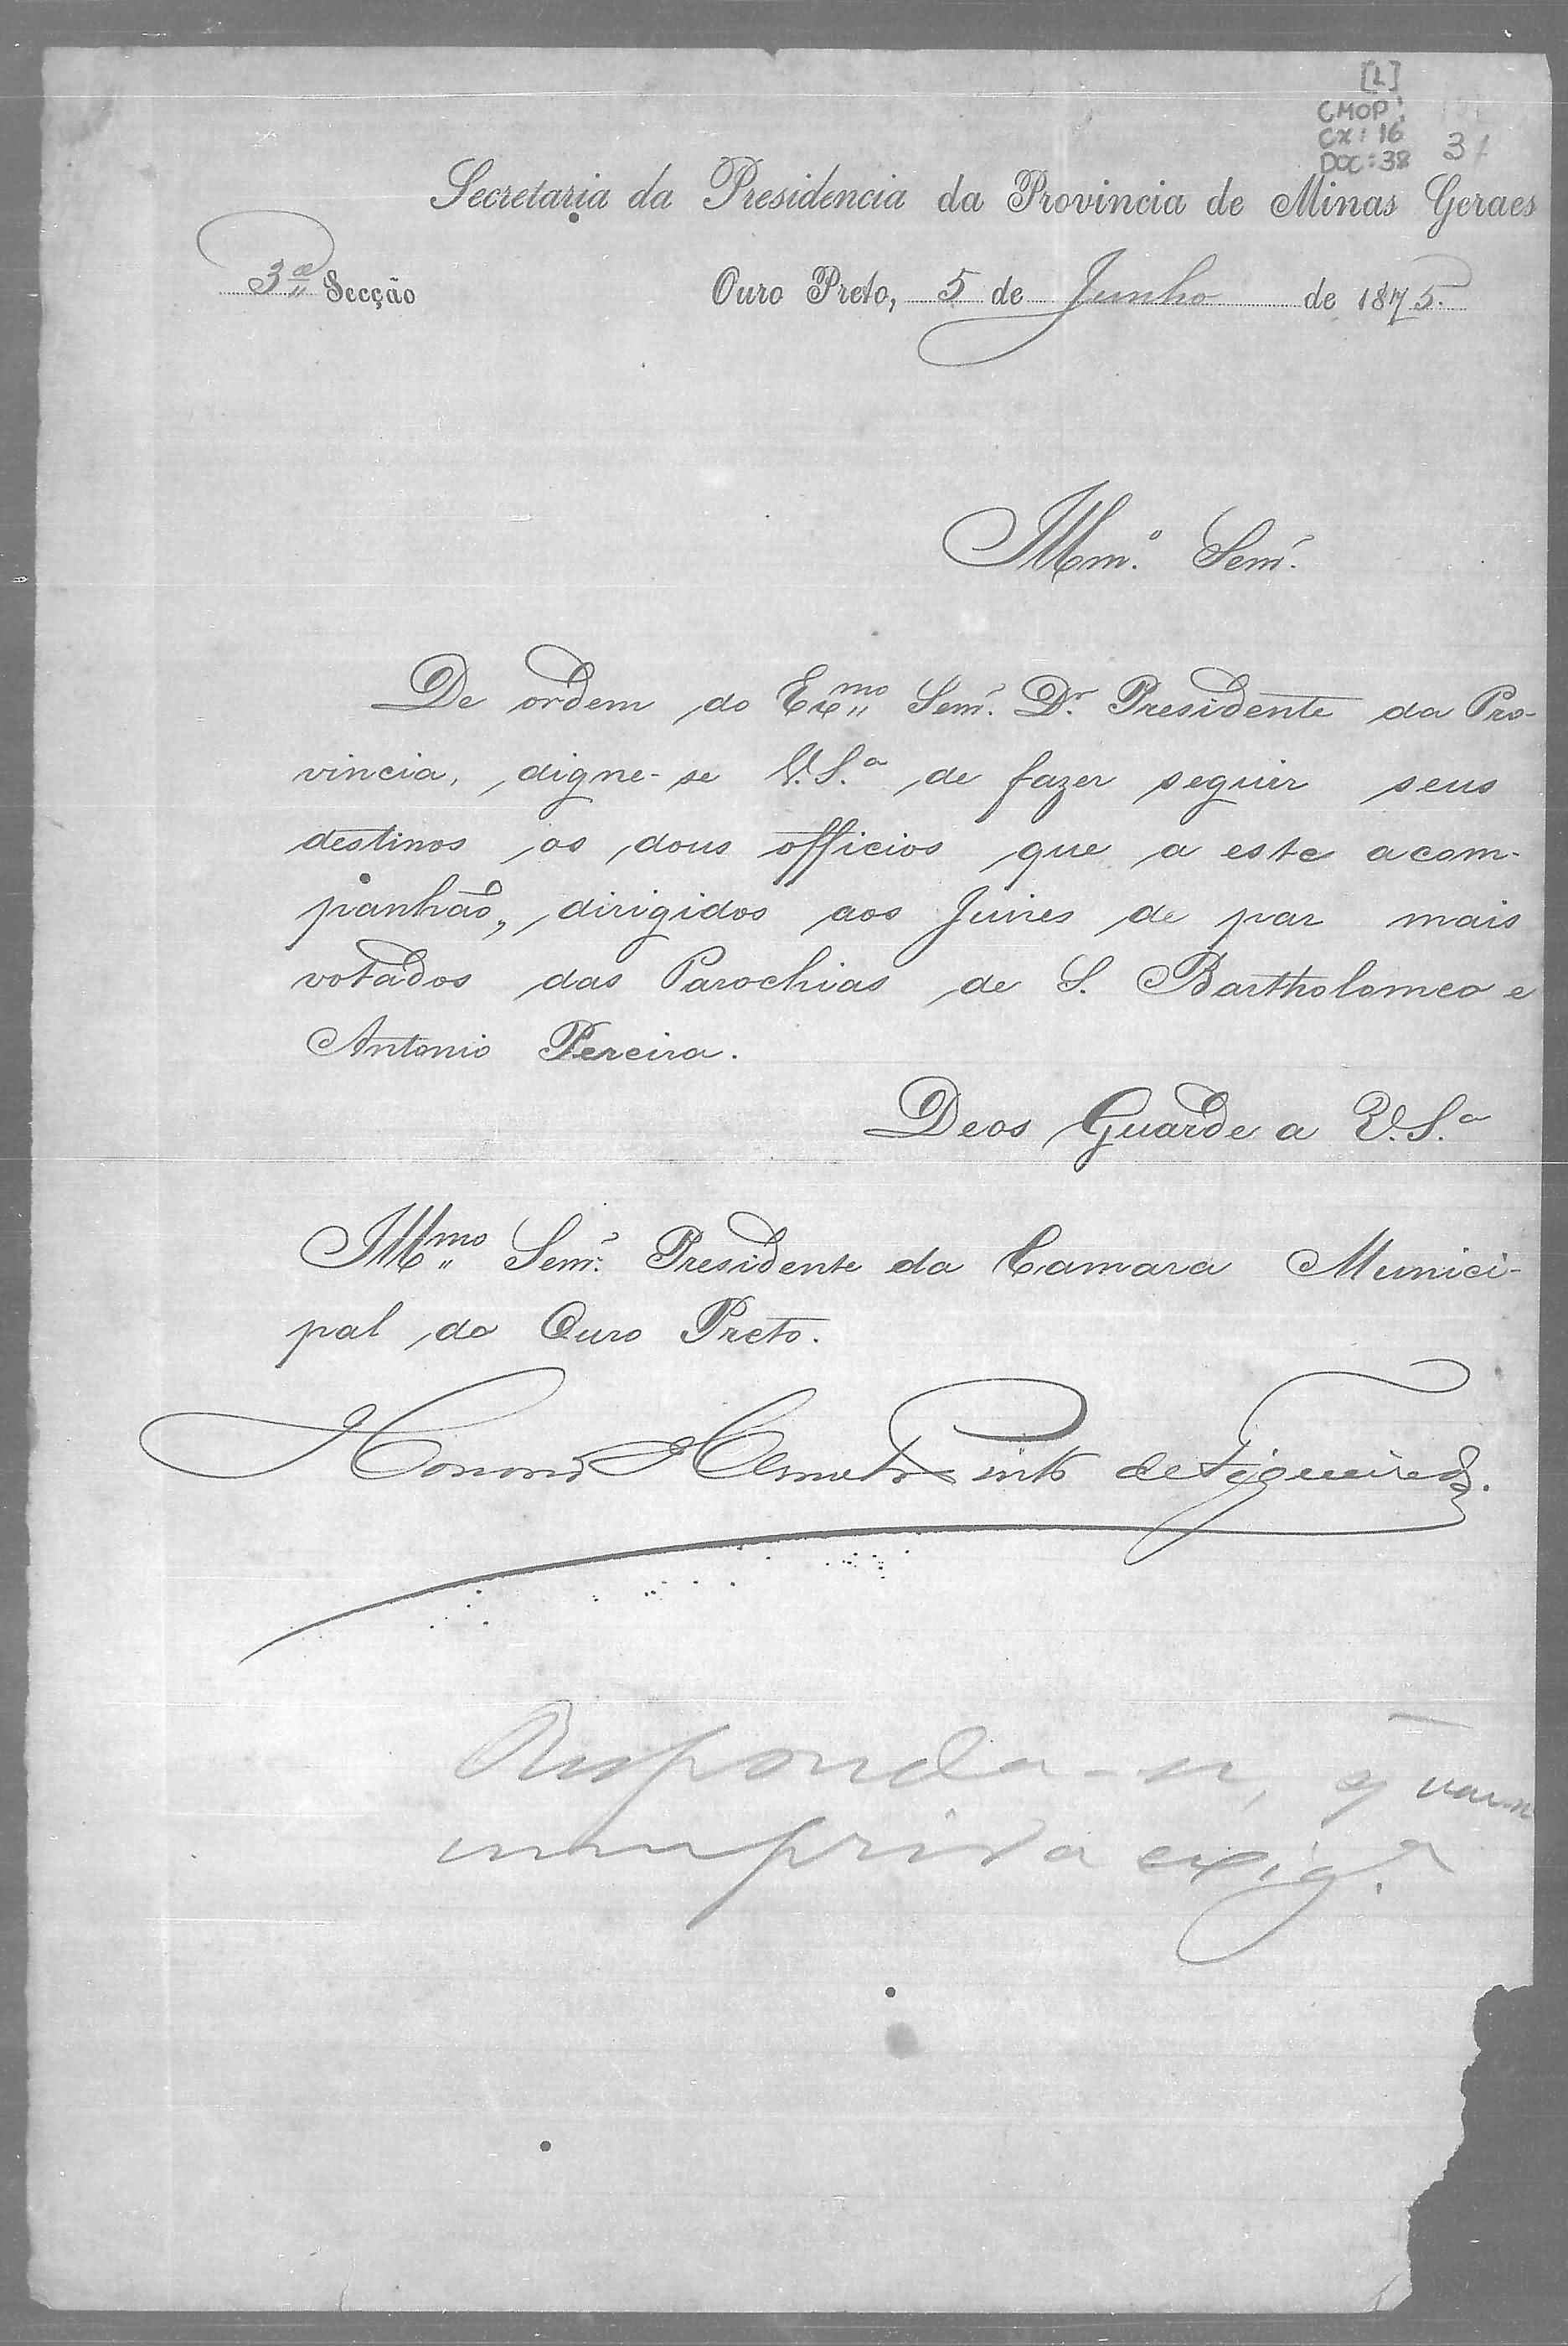 [L]
CMOP:
CX: 16
DOC: 38 31
Secretaria da Presidencia da Provincia de Minas Geraes
3ª Secção Ouro Preto, 5 de Junho de 1875.
Illmº. Senr.
De ordem do Exmo Senr. Dr. Presidente da Pro-
vincia, digne-se V.S.ª de fazer seguir seus
destinos os dous officios que a este acom-
panhão, dirigidos aos Juises de pas mais
votados das Parochias de S. Bartholomeo e
Antonio Pereira.
Deos Guarde a V.S.ª
Illmo Senr. Presidente da Camara Munici-
pal do Ouro Preto.
Honorio Hermeto Pinto de Figueiredo.
Responda-se, q
cumprir a exig.ª